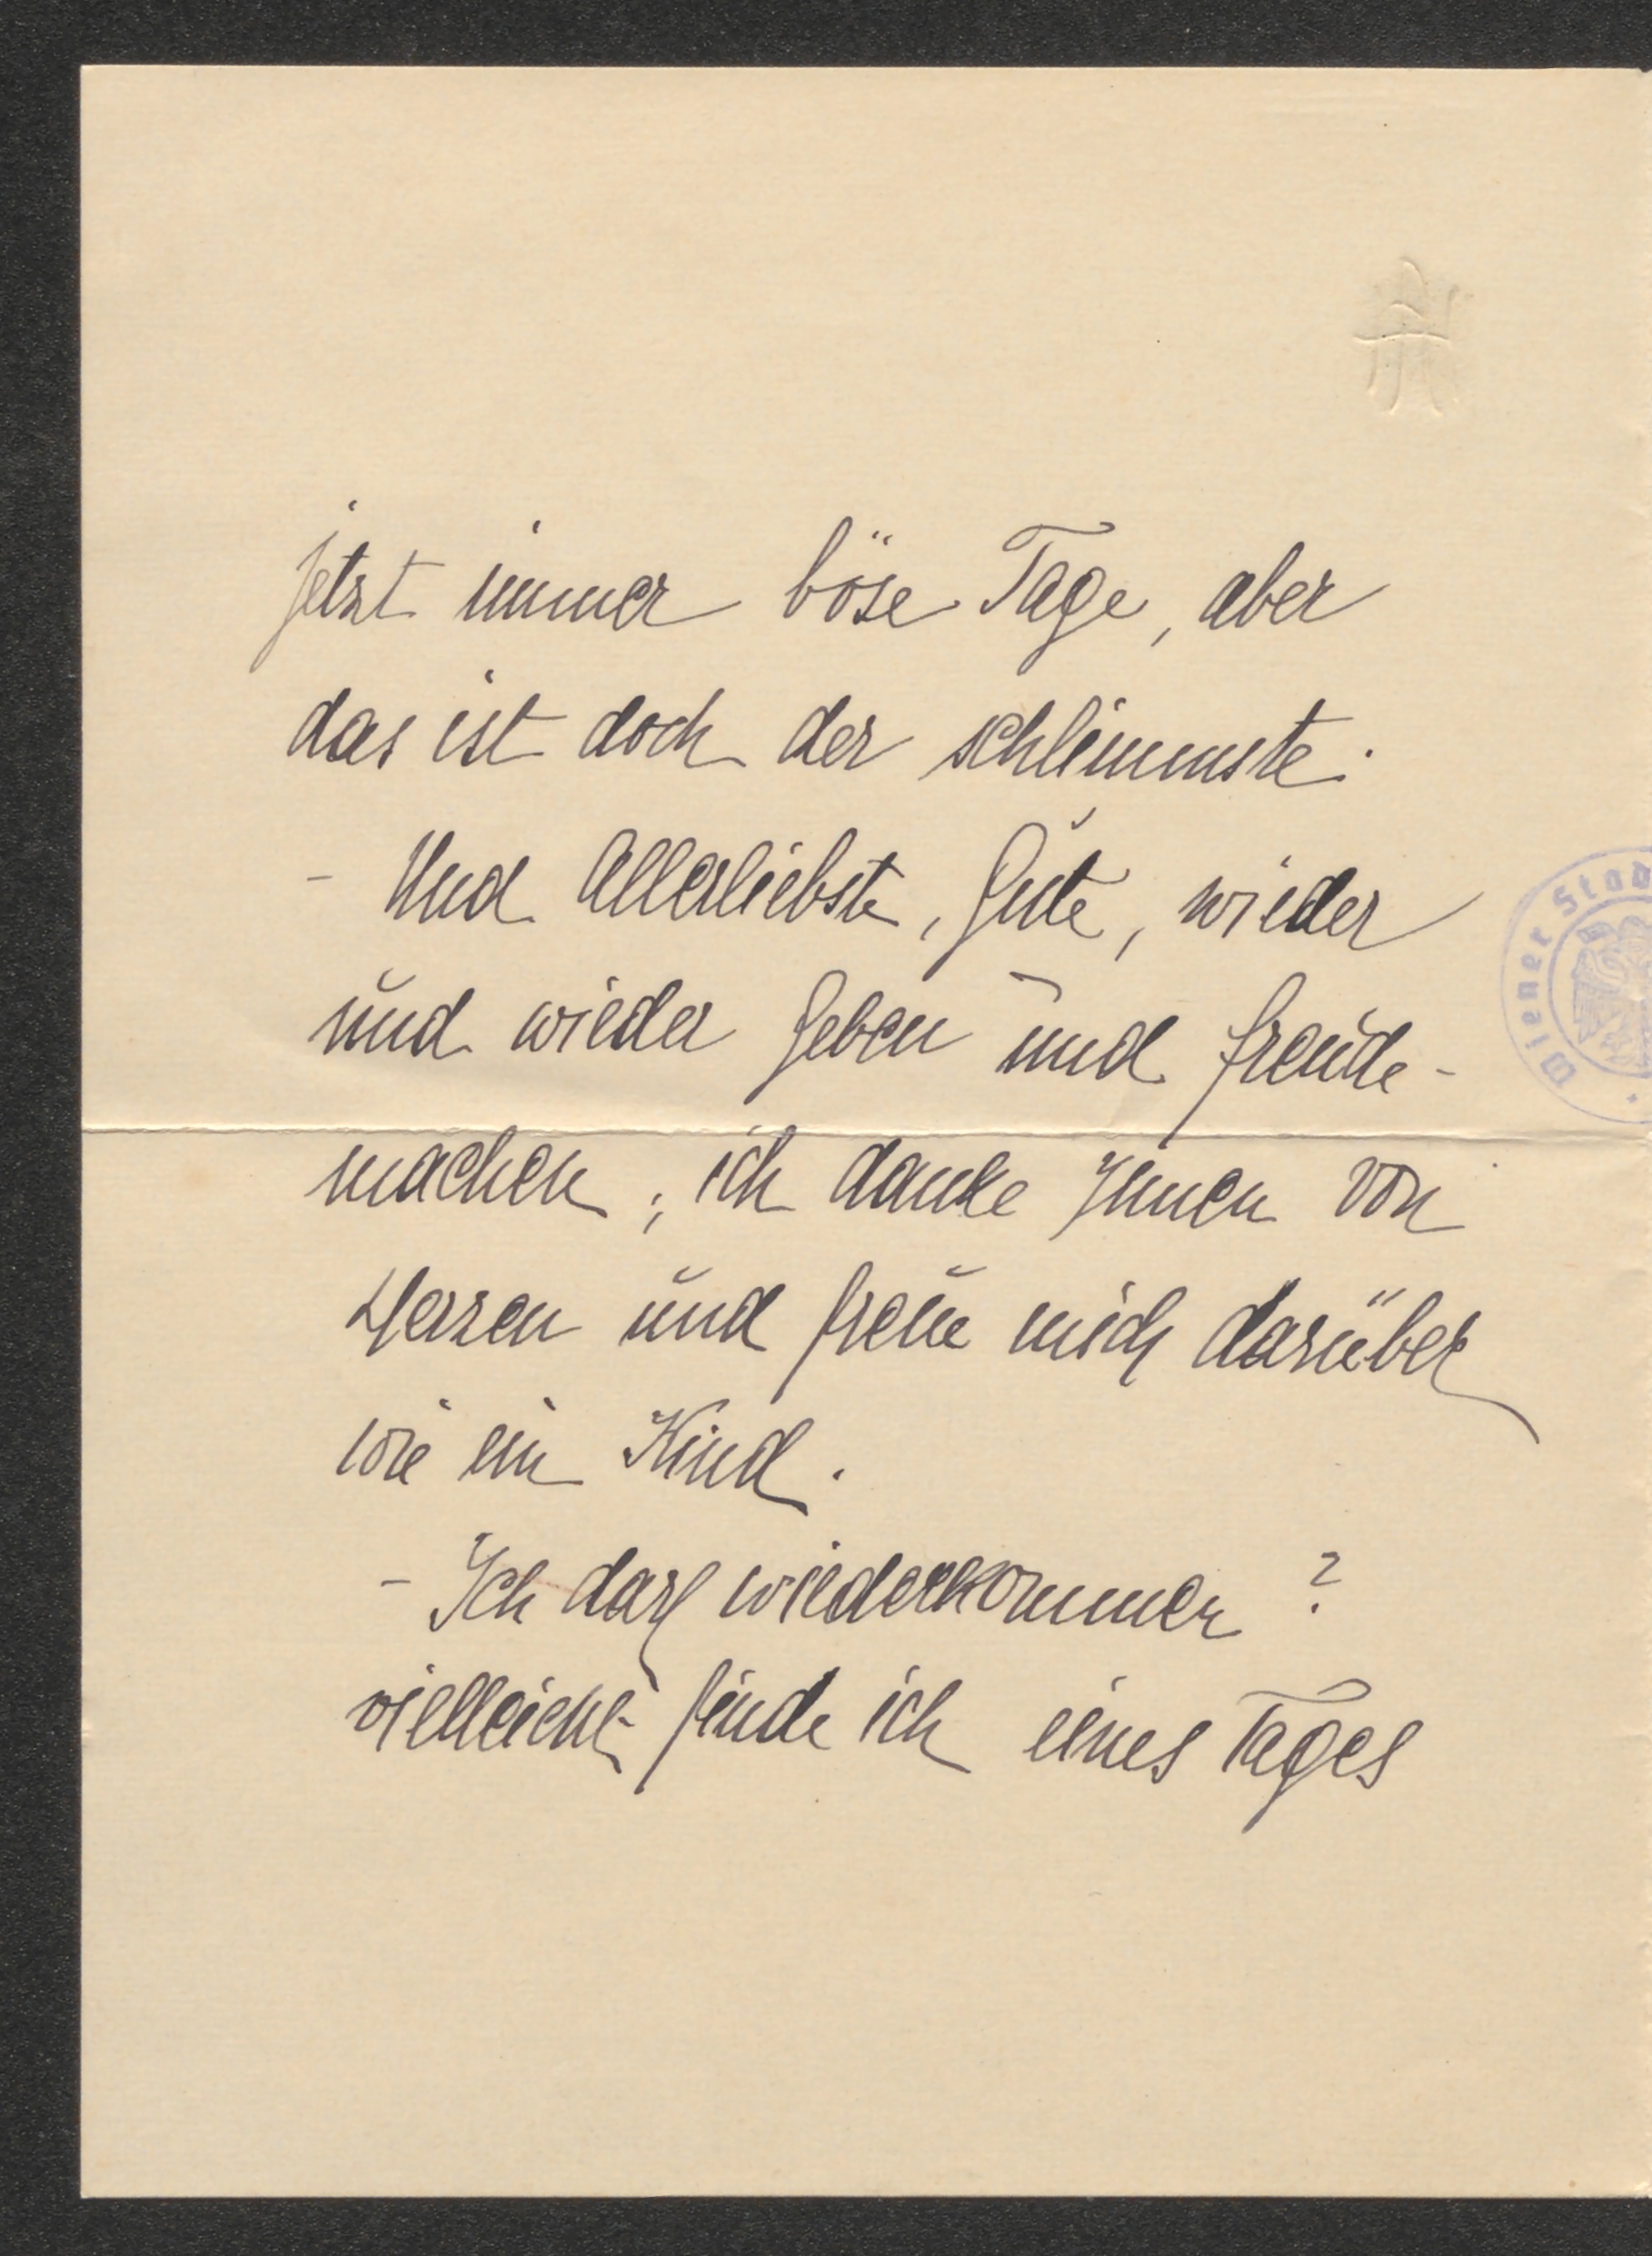 jetzt immer böse Tage, aber
das ist doch der schlimmste.
- Und Allerliebste, Gute, wieder
und wieder Geben und Freude-
machen; ich danke Ihnen von
Herzen und freue mich darüber
wie ein Kind.
- Ich darf wiederkommen?
vielleicht finde ich eines Tages
Wiener Stad